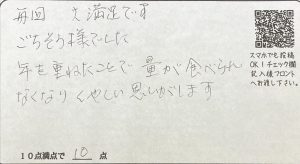 毎回 大満足です
ごちそう様でした
年を重ねたことで 量が食べられ
なくなり くやしい思いがします
10点満点で 10 点
スマホでも投稿
OK!チェック欄
記入後フロント
へお渡し下さい。